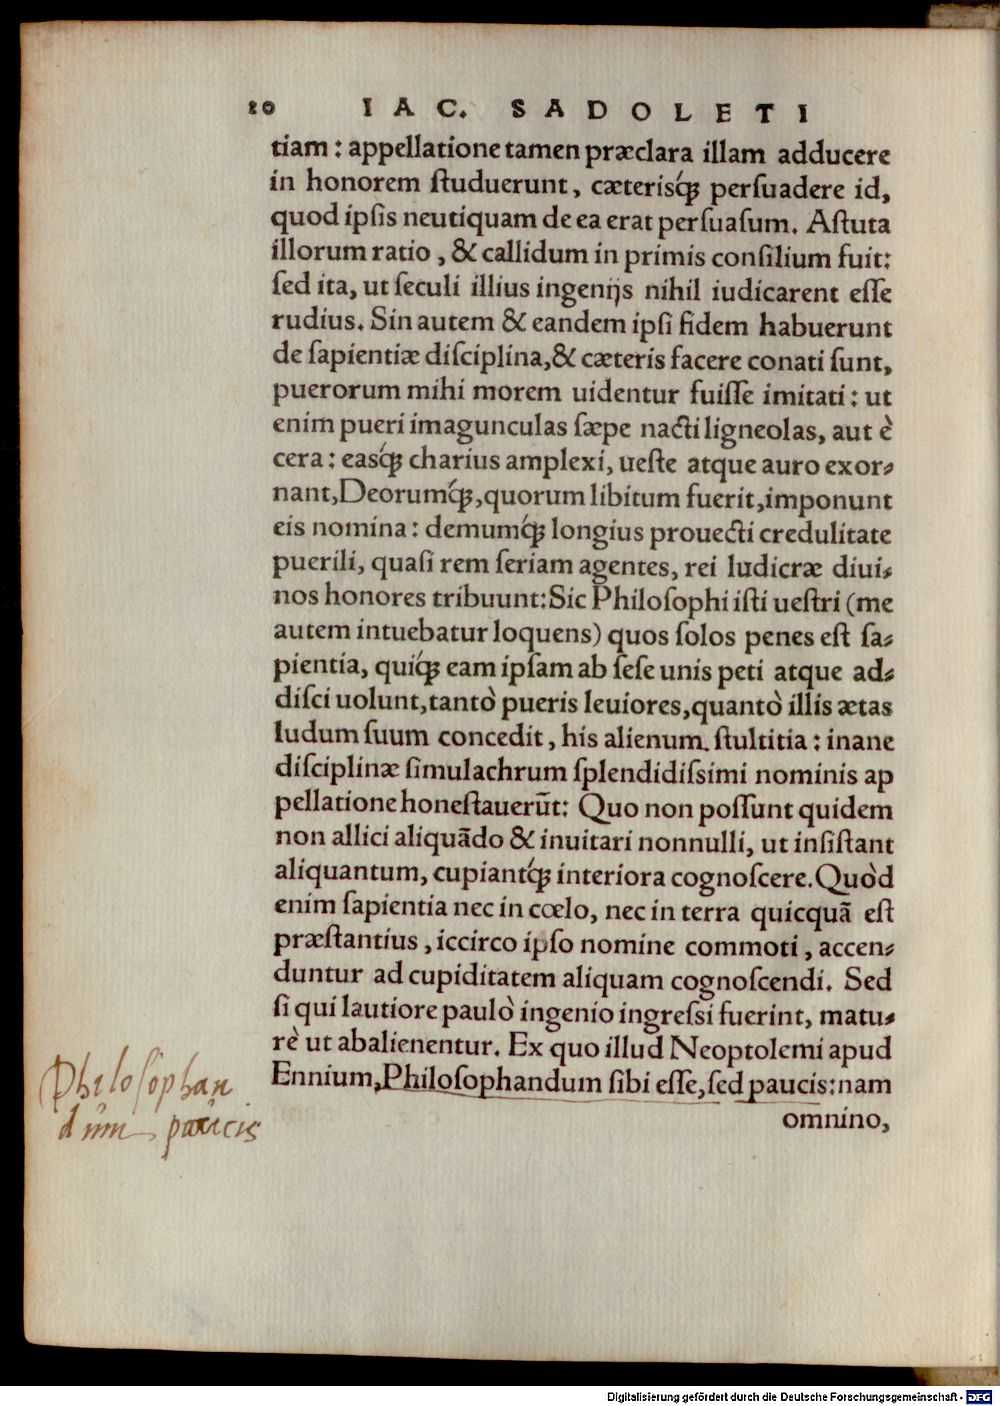 80 IAC. SADOLETI
tiam: appellatione tamen præclara illam adducere
in honorem ſtuduerunt, cæterisq́ꝫ perſuadere id,
quod ipſis neutiquam de ea erat perſuaſum. Aſtuta
illorum ratio, & callidum in primis conſilium fuit:
ſed ita, ut ſeculi illius ingenijs nihil iudicarent eſſe
rudius. Sin autem & eandem ipſi fidem habuerunt
de ſapientiæ diſciplina,& cæteris facere conati ſunt,
puerorum mihi morem uidentur fuiſſe imitati: ut
enim pueri imagunculas ſæpe nacti ligneolas, aut è
cera: easq́ꝫ charius amplexi, ueſte atque auro exor-
nant,Deorumq́ꝫ,quorum libitum fuerit,imponunt
eis nomina: demumq́ꝫ longius prouecti credulitate
puerili, quaſi rem ſeriam agentes, rei ludicræ diui-
nos honores tribuunt:Sic Philoſophi iſti ueſtri (me
autem intuebatur loquens) quos ſolos penes eſt ſa-
pientia, quiq́ꝫ eam ipſam ab ſeſe unis peti atque ad-
diſci uolunt,tantò pueris leuiores,quantò illis ætas
ludum ſuum concedit, his alienum ſtultitia: inane
diſciplinæ ſimulachrum ſplendidiſsimi nominis ap
pellatione honeſtauerūt: Quo non poſſunt quidem
non allici aliquãdo & inuitari nonnulli, ut inſiſtant
aliquantum, cupiantq́ꝫ interiora cognoſcere.Quòd
enim ſapientia nec in cœlo, nec in terra quicquã eſt
præſtantius, iccirco ipſo nomine commoti, accen-
duntur ad cupiditatem aliquam cognoſcendi. Sed
ſi qui lautiore paulò ingenio ingreſsi fuerint, matu-
rè ut abalienentur. Ex quo illud Neoptolemi apud
Ennium,Philoſophandum ſibi eſſe,ſed paucis:nam
omnino,
Philoſophan
dum paucis
Digitalisierung gefördert durch die Deutsche Forschungsgemeinschaft - DFG